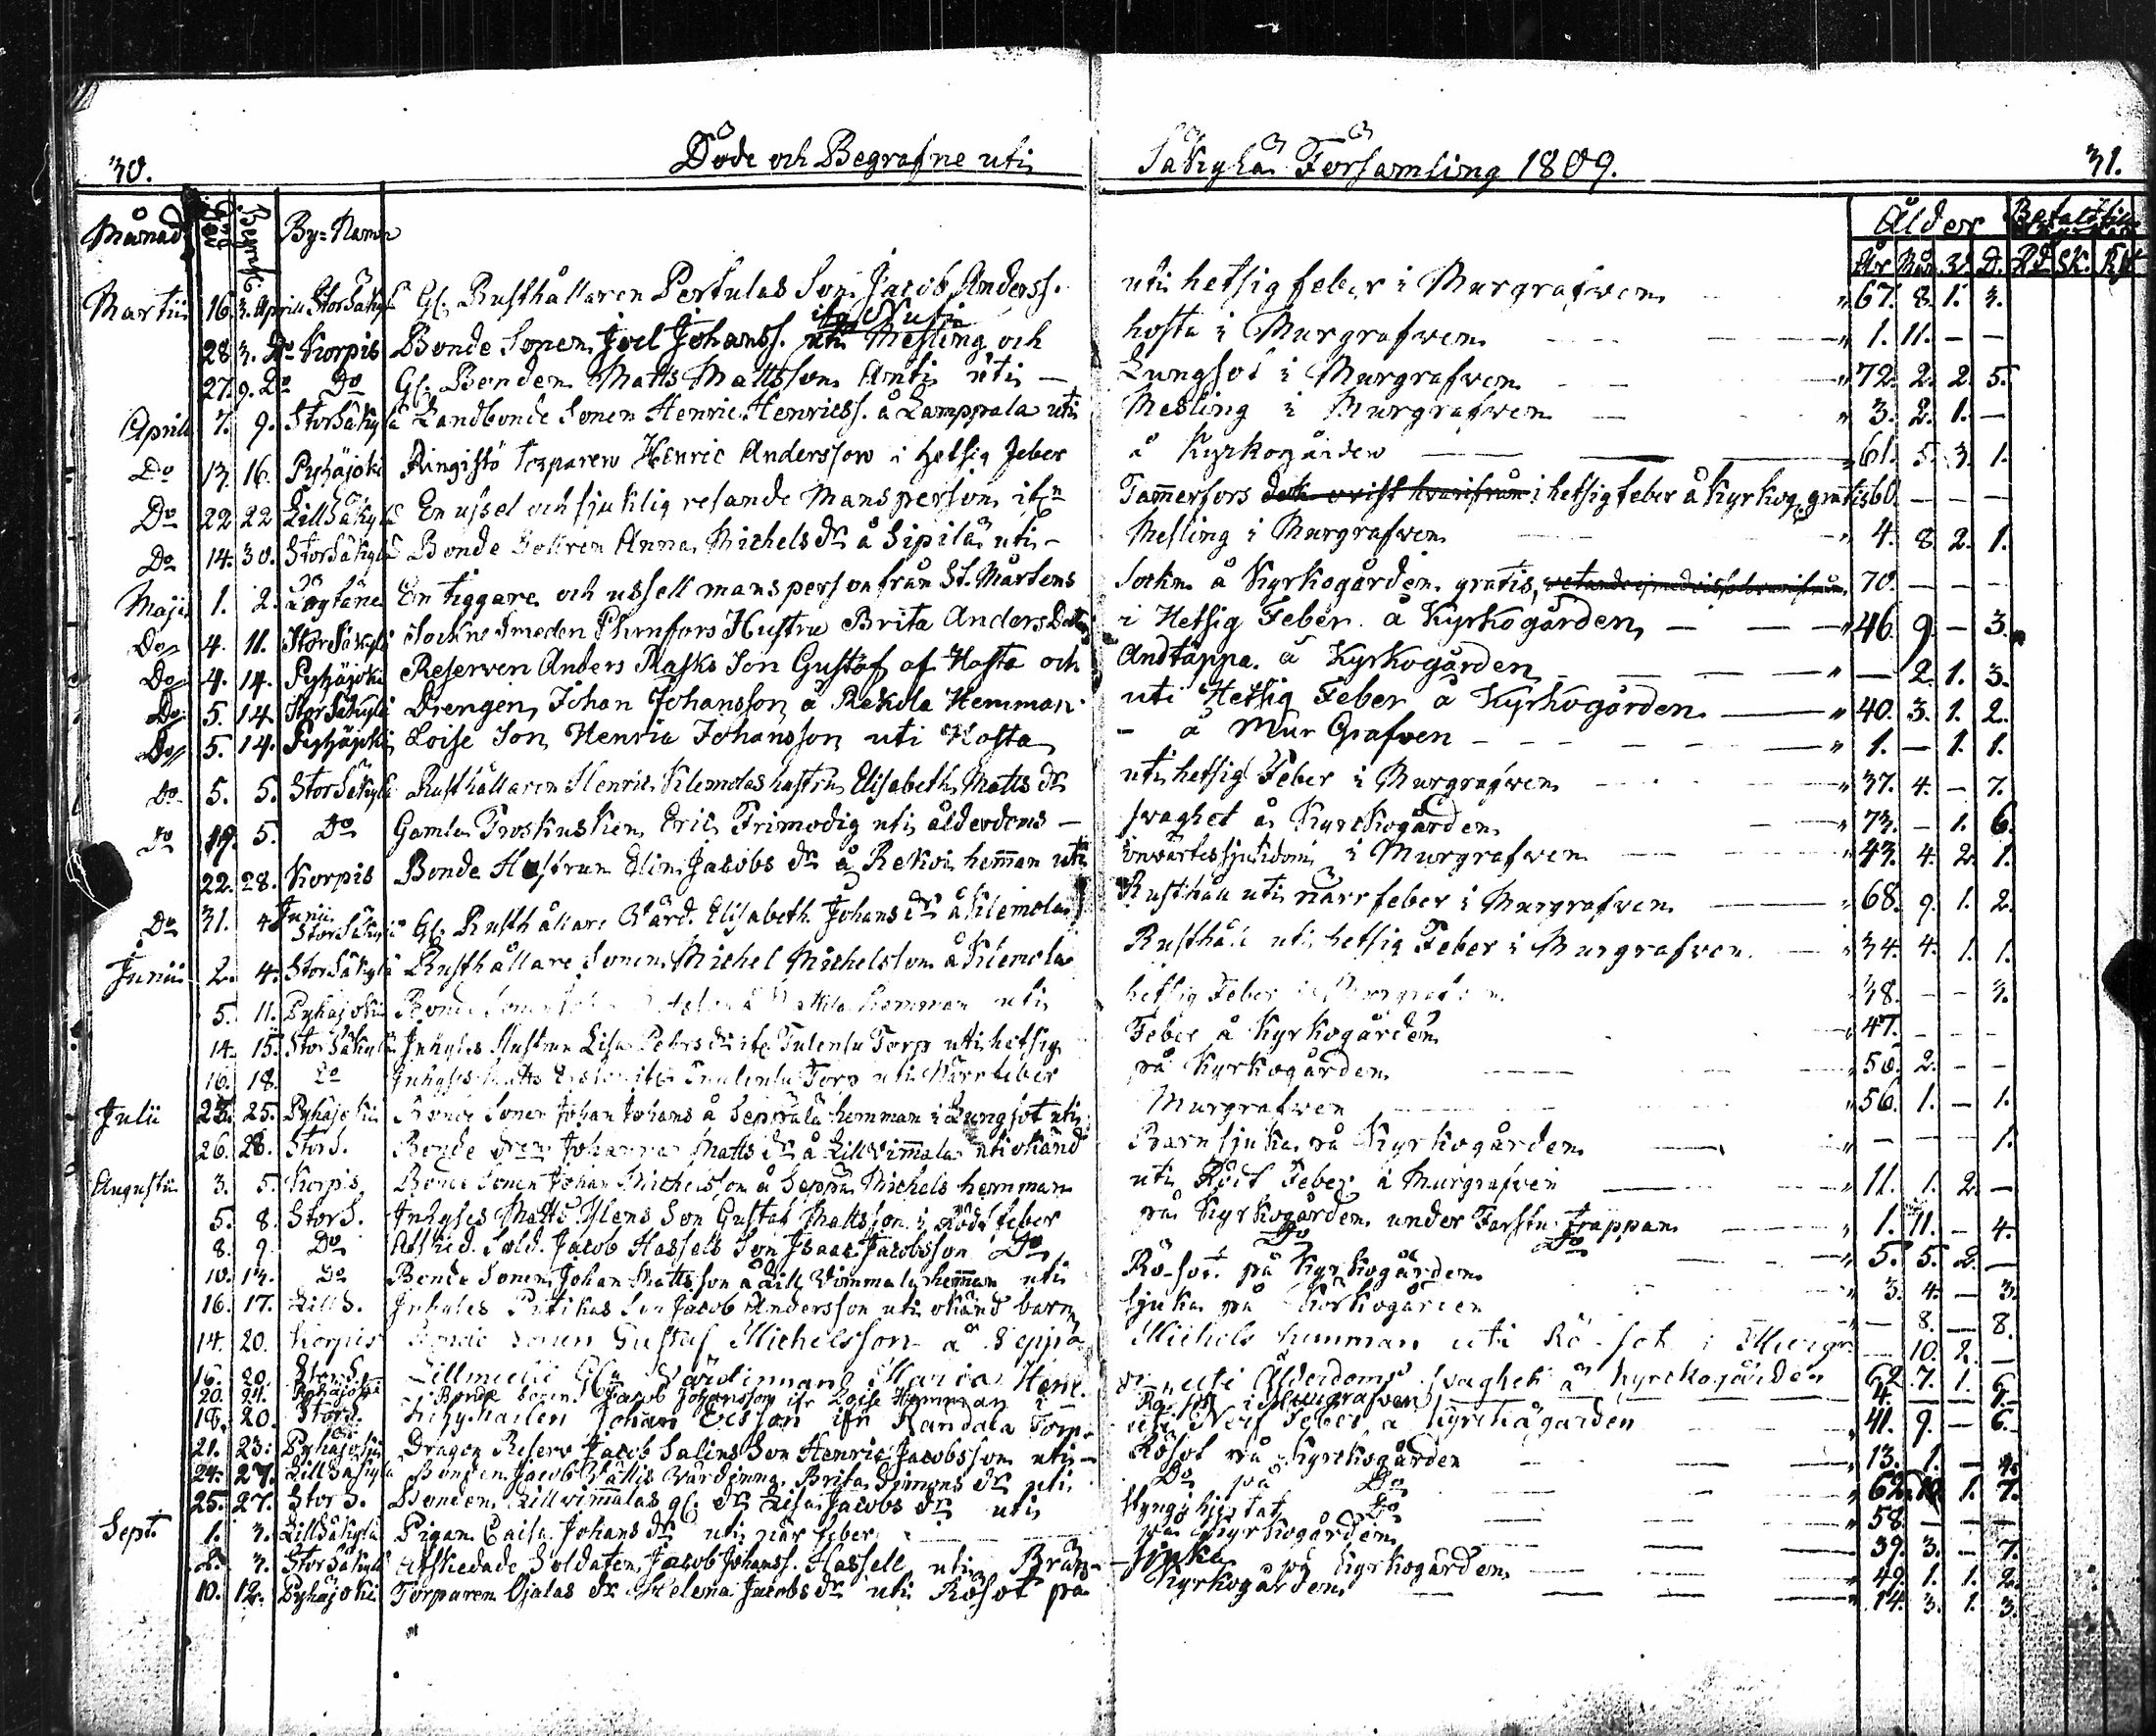 30. Döde och Begrafne uti Säkylä Församling 1809. 31.
Månad Död Begrafn. By-Namn Ålder Betalt till
År Mån. V. D. Rd. sk.
Martii 16. 3. April StorSäkylä Gl. Rusthållaren Pertulas Son Jacob Anderss. uti hetsig feber i Murgrafven 67. 8. 1. 3.
ifr. Nuti
28. 3. Do Korpis Bonde Sonen Joel Johanss. uti Mesling och hosta i Murgrafven 1. 11. – –
27. 9. Do Do Gl. Bonden Matts Mattsson Anti uti – Lungsot i Murgrafven 72. 2. 2. 5.
April 7. 9. StorSäkylä Landbonde Sonen Henric Henricss. å Lamppala uti Mesling i Murgrafven 3. 2. 1. –
Do 13. 16. Pyhäjoki Ringistö Torparen Henric Andersson i hetsig feber å Kyrkogården 61. 5. 3. 1.
Do 22. 22. LillSäkylä En ussel och sjuklig resande Mansperson ifrn Tammerfors i hetsig feber å Kyrkog. gratis 60. – – –
Do 14. 30. StorSäkylä Bonde Dottren Anna Michels dr å Sipilä uti – Mesling i Murgrafven 4. 8. 2. 1.
Maji 1. 2. Löytäne En tiggare och ussell mansperson från St. Mårtens Sockn å Kyrkogården gratis, 70. – – –
Do 4. 11. StorSäkylä Sockne Smeden Hustru Brita Anders Dotter i Hetsig Feber å Kyrkogården 46. 9. – 3.
Do 4. 14. Pyhäjoki Reserven Anders Rasks Son Gustaf af Hosta och Andtäppa å Kyrkogården – 2. 1. 3.
Do 5. 14. StorSäkylä Drengen Johan Johansson å Rekola Hemman uti Hetsig Feber å Kyrkogården 40. 3. 1. 2.
Do 5. 14. Pyhäjoki Loise Son Henric Johansson uti Hosta – å Mur Grafven 1. – 1. 1.
Do 5. 5. StorSäkylä Rusthållaren Henric Klemolas hustru Elisabeth Matts dr uti hetsig Feber i Murgrafven 37. 4. – 7.
Do 19. 5. Do Gamla Eric Frimodig uti ålderdoms – svaghet å Kyrkogården 73. – 1. 6.
22. 28. Korpis Bonde Hustrun Elin Jacobs dr å Rekoi hemman uti invärtes sjukdom i Murgrafven 43. 4. 2. 1.
Do 31. 4. Junii StorSäkylä Gl. Rusthållare Värd. Elisabeth Johans dr å Klemola Rusthåll uti närf feber i Murgrafven 68. 9. 1. 2.
Junii 2. 4. StorSäkylä Rusthållare Sonen Michel Michelsson å Klemola Rusthåll uti hetsig Feber i Murgrafven 34. 4. 1. 1.
5. 11. Pyhäjoki Bonde Sonen hemman uti hetsig Feber i Murgrafven 38. – – 3.
14. 15. StorSäkylä Inhyses Hustrun Lisa Peters dr ifr. Torp uti hetsig Feber å Kyrkogården 47. – – –
16. 18. Do Inhyses Matts Torp uti Närf feber på Kyrkogården 50. 2. – –
Julii 23. 25. Pyhäjoki Bonde Sonen Johan Johans å Seppälä hemman i Lungsot uti Murgrafven 56. 1. – 1.
26. 28. StorS. Bonde Johanna Matts dr å Lillvimmala uti okänd Barnsjuka på Kyrkogården – – – 1.
Augustii 3. 5. Korpis Bonde Sonen Johan Michelsson å Seppä Michels hemman uti Röd Feber i Murgrafven 11. 1. 2. –
5. 8. StorS. Inhyses Matts Son Gustaf Mattsson i Röd feber på Kyrkogården under Farstu Trappan 1. 11. – 4.
8. 9. Do Afsked. Sold. Jacob Hassels Son Isaac Jacobsson Do Do Do 5. 5. 2. –
10. 13. Do Bonde Sonen Johan Mattsson å Lill Vimmala hemman uti Rö-sot på Kyrkogården 3. 4. – 3.
16. 17. LillS. Inhyses Son Jacob Andersson uti okänd barn sjuka på Kyrkogården – 8. – 8.
14. 20. Korpis Bonde Sonen Gustaf Michelsson å Seppä Michels hemman uti Rö-sot i Murgr. – 10. 2. –
16. 20. StorS. Gla Värdinnan Maria Henr. dr uti Ålderdoms svaghet å Kyrkogården 62. 7. 1. 6.
20. 24. Pyhäjoki Bonde Sonen Jacob Johansson ifr Loise Hemman i Rö sot i Murgrafven 4.
18. 20. StorS. Johan Ersson ifr Randala Torp uti Nerf Feber å Kyrkogården 41. 9. – 6.
21. 23. Pyhäjoki Dragon Reserv Jacob Salins Son Henric Jacobsson uti – Rösot på Kyrkogården 13. 1. – 4.
24. 27. LillSäkylä Bonden Jacob Värdinna Brita Simons dr uti Do på Do 62. 10. 1. 7.
25. 27. StorS. Bonden Lillvimmalas gl. dr Lisa Jacobs dr uti Do 58. – – –
Sept. 1. 3. LillSäkylä Pigan Caisa Johans dr uti när feber på Kyrkogården 39. 3. – 7.
2. 3. StorSäkylä Afskedade Soldaten Jacob Johanss. Hassell uti Bröst- sjuka på Kyrkogården 49. 1. 1. 2.
10. 12. Pyhäjoki Torparen Ojalas dr Helena Jacobs dr uti Rösot på Kyrkogården 14. 3. 1. 3.